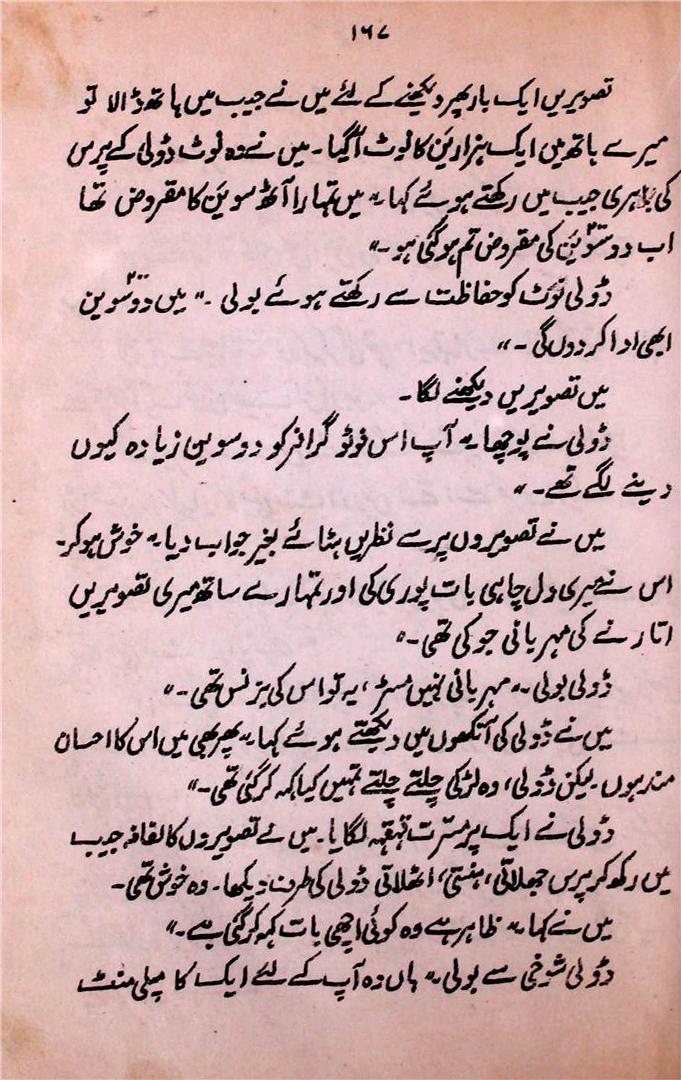 ۱۶۷
تصویریں ایک بار پھر دیکھنے کے لئے میں نے جیب میں ہاتھ ڈالا تو
میرے ہاتھ میں ایک ہزار ین کا نوٹ آگیا۔ میں نے وہ نوٹ ڈولی کے پرس
کی باہری جیب میں رکھتے ہوئے کہا۔ "میں تمہارا آٹھ سو ین کا مقروض تھا
اب دو سو ین کی مقروض تم ہو گئی ہو۔"
ڈولی نوٹ کو حفاظت سے رکھتے ہوئے بولی۔ "میں دو سو ین
ابھی ادا کر دوں گی۔"
میں تصویریں دیکھنے لگا۔
ڈولی نے پوچھا۔ "آپ اس فوٹو گرافر کو دو سو ین زیادہ کیوں
دینے لگے تھے۔"
میں نے تصویروں پر سے نظریں ہٹائے بغیر جواب دیا۔ "خوش ہو کر۔
اس نے میری دل چاہی بات پوری کی اور تمہارے ساتھ میری تصویریں
اتارنے کی مہربانی جو کی تھی۔"
ڈولی بولی۔ "مہربانی نہیں مسٹر، یہ تو اس کی بزنس تھی۔"
میں نے ڈولی کی آنکھوں میں دیکھتے ہوئے کہا۔ "پھر بھی میں اس کا احسان
مند ہوں۔ لیکن ڈولی، وہ لڑکی چلتے چلتے تمہیں کیا کہہ کر گئی تھی۔"
ڈولی نے ایک پر مسرت قہقہہ لگایا۔ میں نے تصویروں کا لفافہ جیب
میں رکھ کر پرس جھلاتی، ہنستی، اٹھلاتی ڈولی کی طرف دیکھا۔ وہ خوش تھی۔
میں نے کہا۔ "ظاہر ہے وہ کوئی اچھی بات کہہ کر گئی ہے۔"
ڈولی شوخی سے بولی۔ "ہاں وہ آپ کے لئے ایک کامپلی منٹ